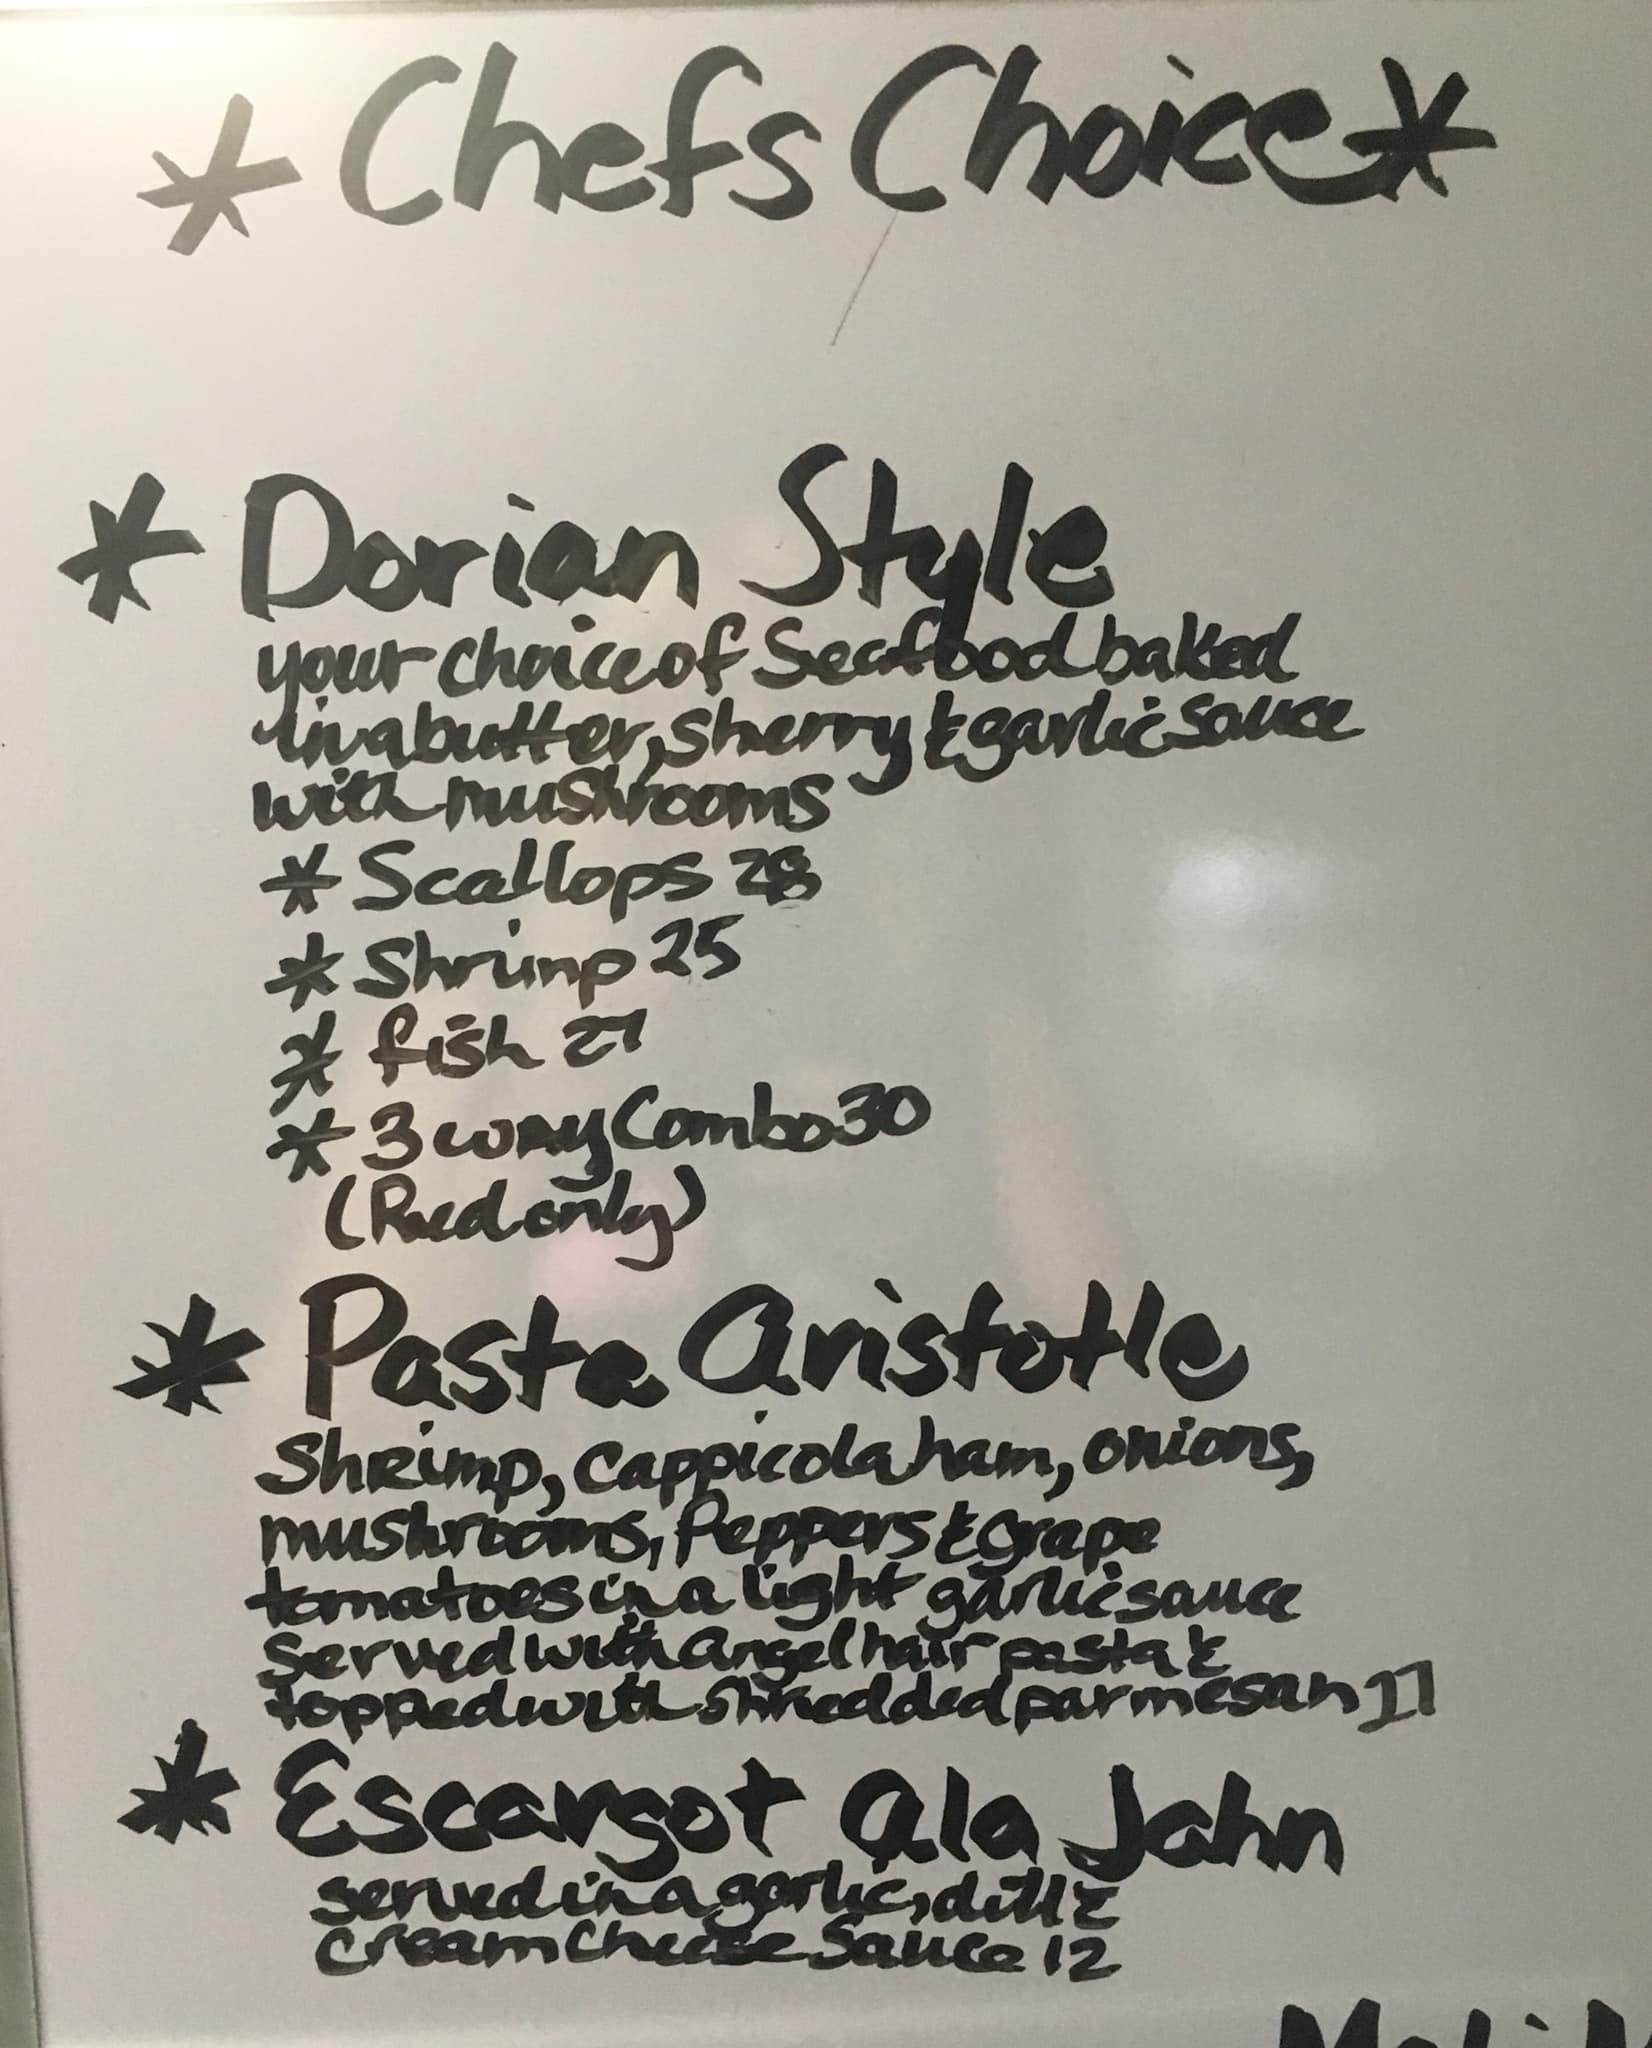 * Chefs Choice *
* Dorian Style
your choice of Seafood baked
in a butter, sherry & garlic sauce
with mushrooms
* Scallops 28
* Shrimp 25
* fish 27
* 3 way Combo 30
(Red only)
* Pasta Aristotle
Shrimp, Cappicola ham, onions,
mushrooms, Peppers & Grape
tomatoes in a light garlic sauce
Served with angel hair pasta &
topped with shredded parmesan 17
* Escargot Ala John
served in a garlic, dill &
cream cheese sauce 12